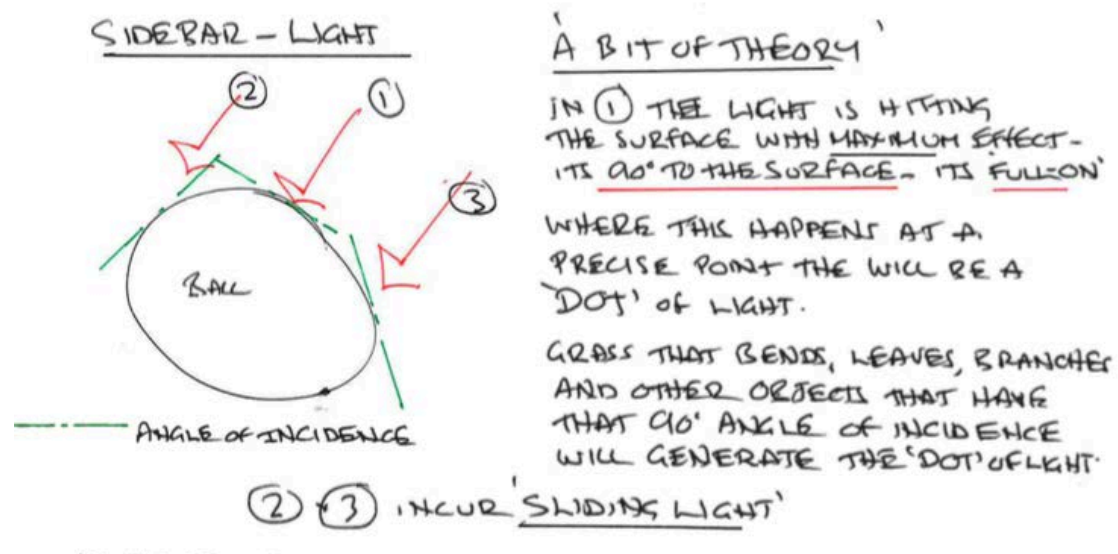 SIDEBAR - LIGHT
② ① ③
BALL
ANGLE OF INCIDENCE
'A BIT OF THEORY'
IN ① THE LIGHT IS HITTING
THE SURFACE WITH MAXIMUM EFFECT -
ITS 90° TO THE SURFACE - ITS 'FULL-ON'
WHERE THIS HAPPENS AT A
PRECISE POINT THE WILL BE A
'DOT' OF LIGHT.
GRASS THAT BENDS, LEAVES, BRANCHES
AND OTHER OBJECTS THAT HAVE
THAT 90° ANGLE OF INCIDENCE
WILL GENERATE THE 'DOT' OF LIGHT.
② + ③ INCUR 'SLIDING LIGHT'